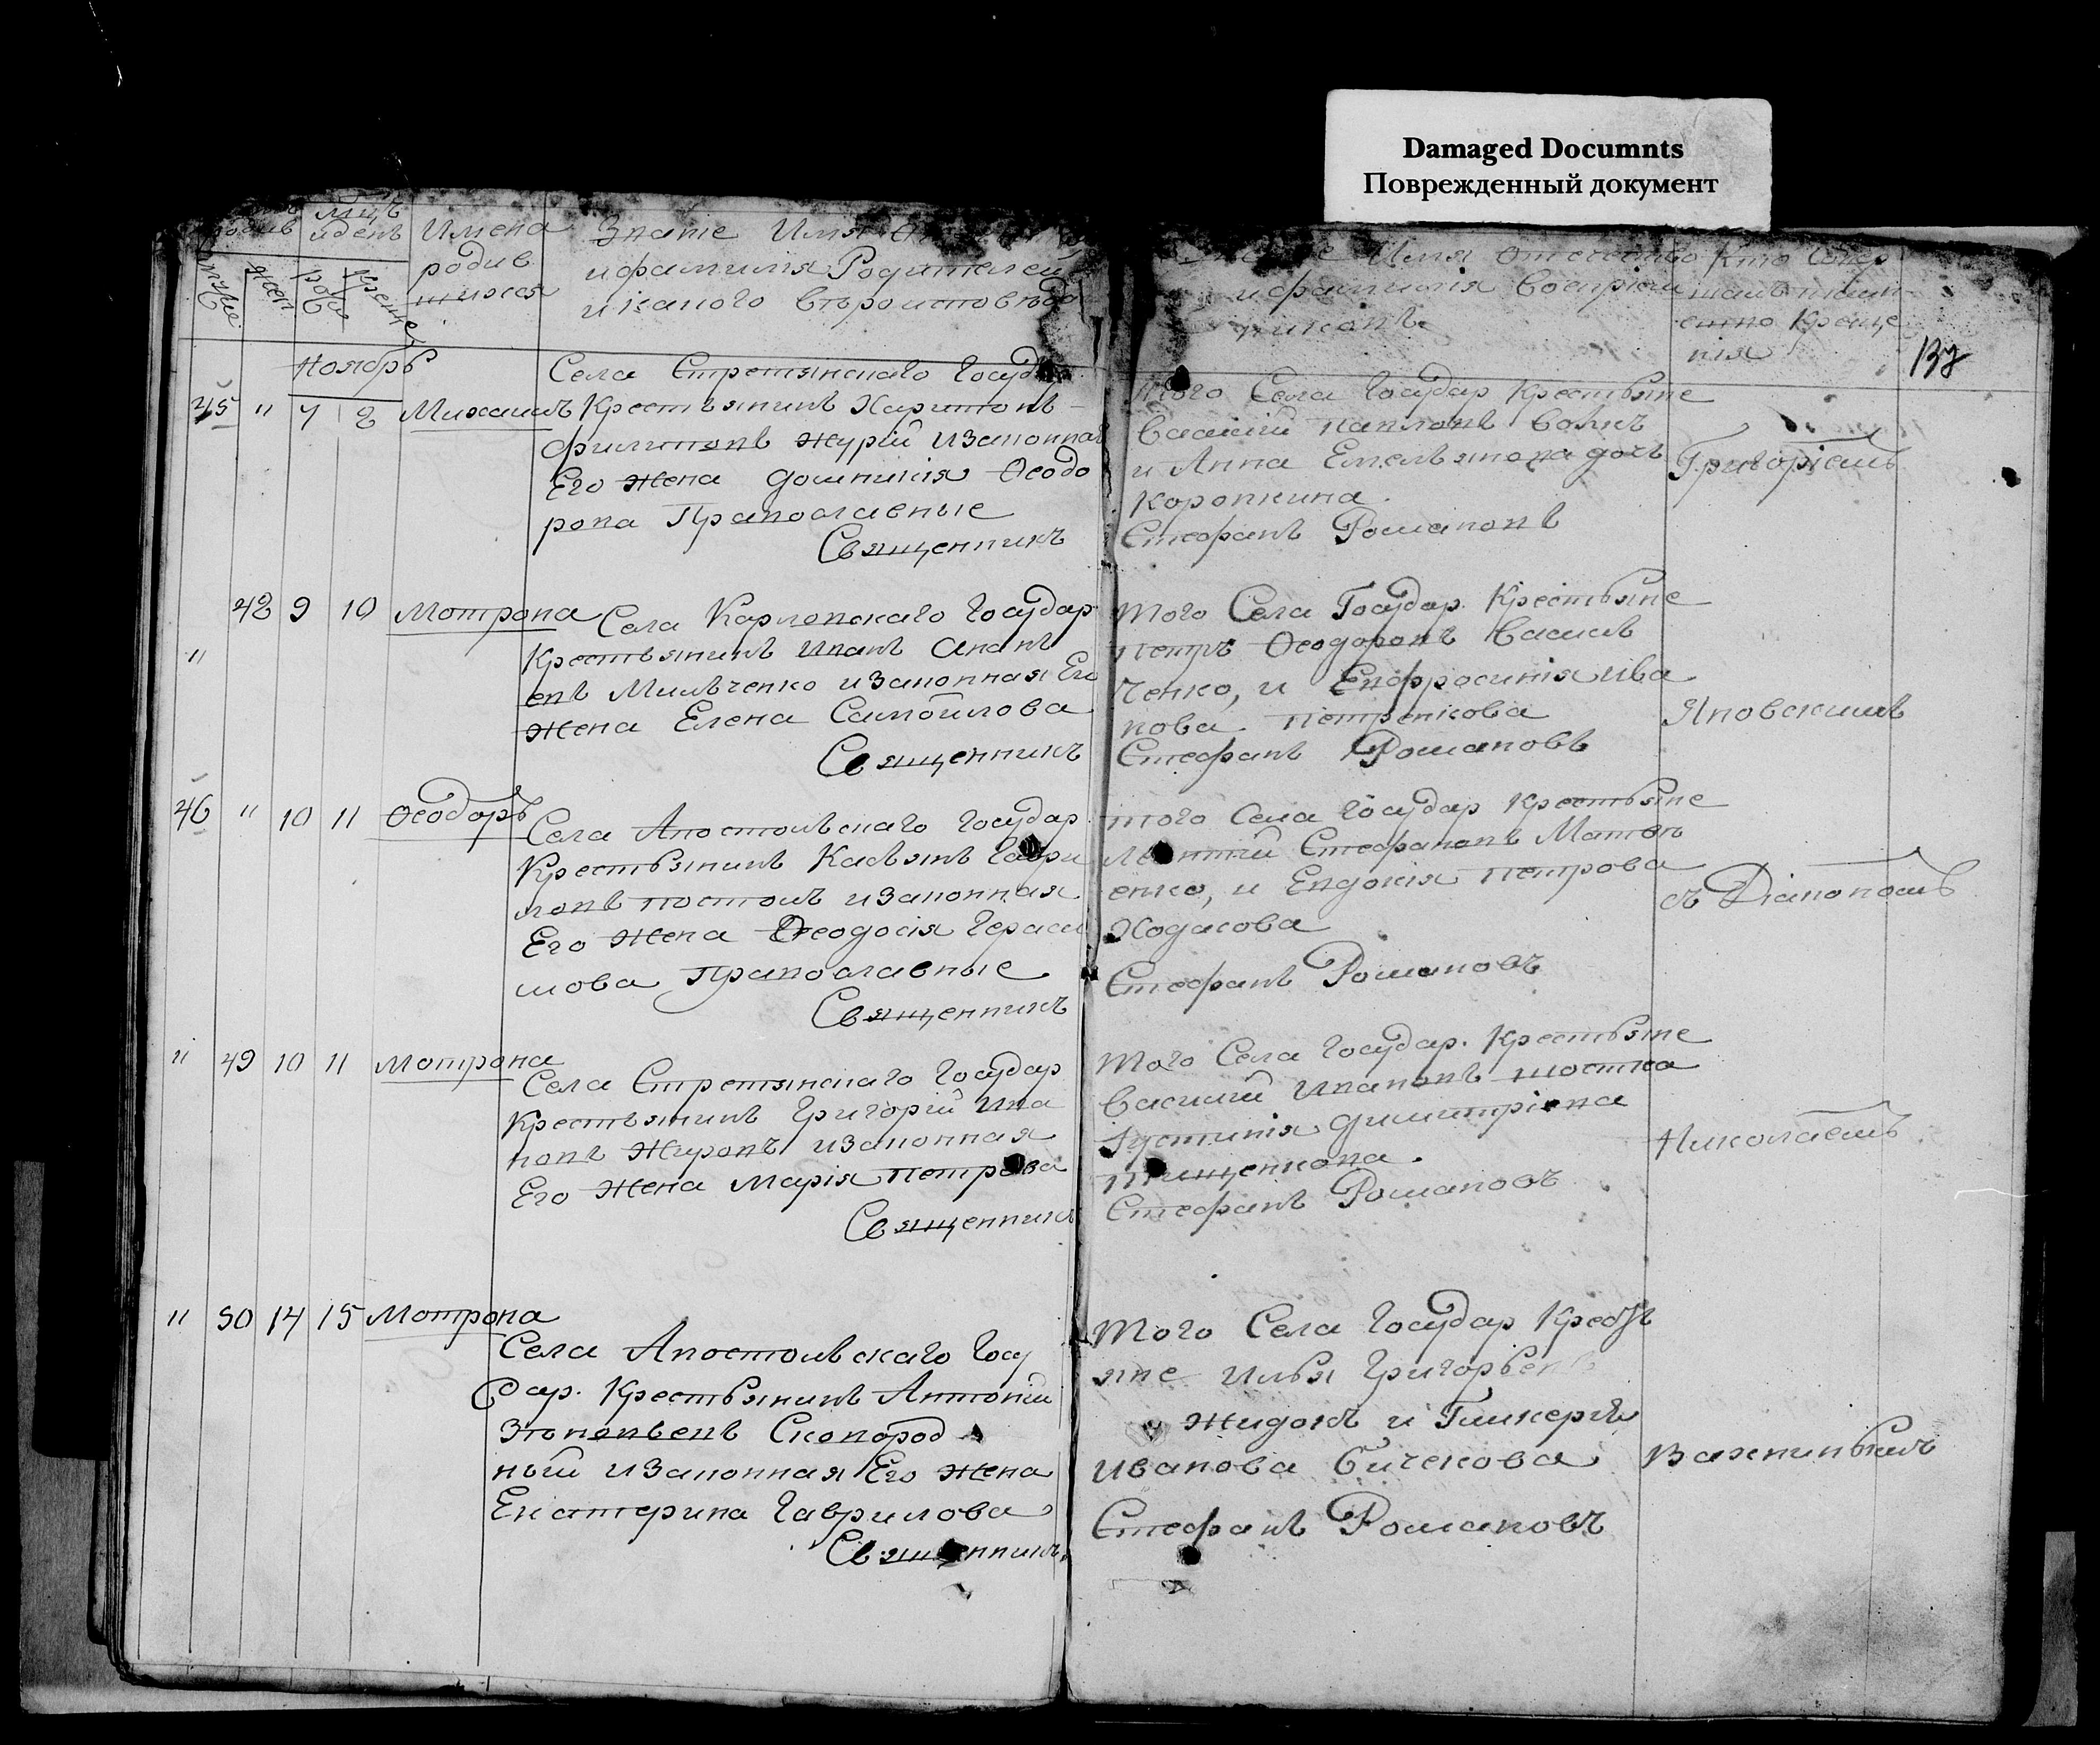 Damaged Documnts
Поврежденный документ
Имена
родив
шихся
Званіе Имя
и фамилія Родителей
и какого вѣроисповѣда
Имя Отечество
и фамилія Воспріем
никовъ
Кто Совер
шалъ таин
ство Креще
нія
Ноябрь
45 " 7 8 Михаилъ
Села Стретянскаго Госуд
Крестьянинъ Харитонъ
Филиповъ Журій и Законная
Его жена Домникія Ѳеодо
рова Православные
Священникъ
Того Села Государ Крестьяне
Василій Павловъ Волкъ
и Анна Емельянова дочь
Коропкина.
Стефанъ Романовъ
Григоріемъ
" 48 9 10 Мотрона
Села Карловскаго Государ
Крестьянинъ Иванъ Анан
евъ Мильченко и Законная Его
жена Елена Самойлова
Священникъ
Того Села Государ. Крестьяне
Петръ Ѳеодоровъ Василь
ченко, и Евфросинія Ива
нова Петренкова
Стефанъ Романовъ
Яновскимъ
46 " 10 11 Ѳеодоръ
Села Апостольскаго Государ
Крестьянинъ Касьянъ Гаври
ловъ Постолъ и Законная
Его жена Ѳеодосія Гераси
мова Православные
Священникъ
того Села Государ Крестьяне
Леонтій Стефановъ Матв
енко, и Евдокія Петрова
Ходасова
Стефанъ Романовъ
съ Діакономъ
" 49 10 11 Мотрона
Села Стретянскаго Государ
Крестьянинъ Григорій Ива
новъ Жировъ и Законная
Его жена Марія Петрова
Священникъ
Того Села Государ. Крестьяне
Василій Ивановъ Шостка
Іустинія Димитріева
Тищенкова.
Стефанъ Романовъ
Николаемъ
" 50 14 15 Мотрона
Села Апостольскаго Госу
дар. Крестьянинъ Антоній
Зѣновьевъ Сковород
ный и Законная Его жена
Екатерина Гаврилова
Священникъ
Того Села Государ Кресть
яне Илья Григорьевъ
Жидокъ и Гликерія
Иванова Бичекова
Стефанъ Романовъ